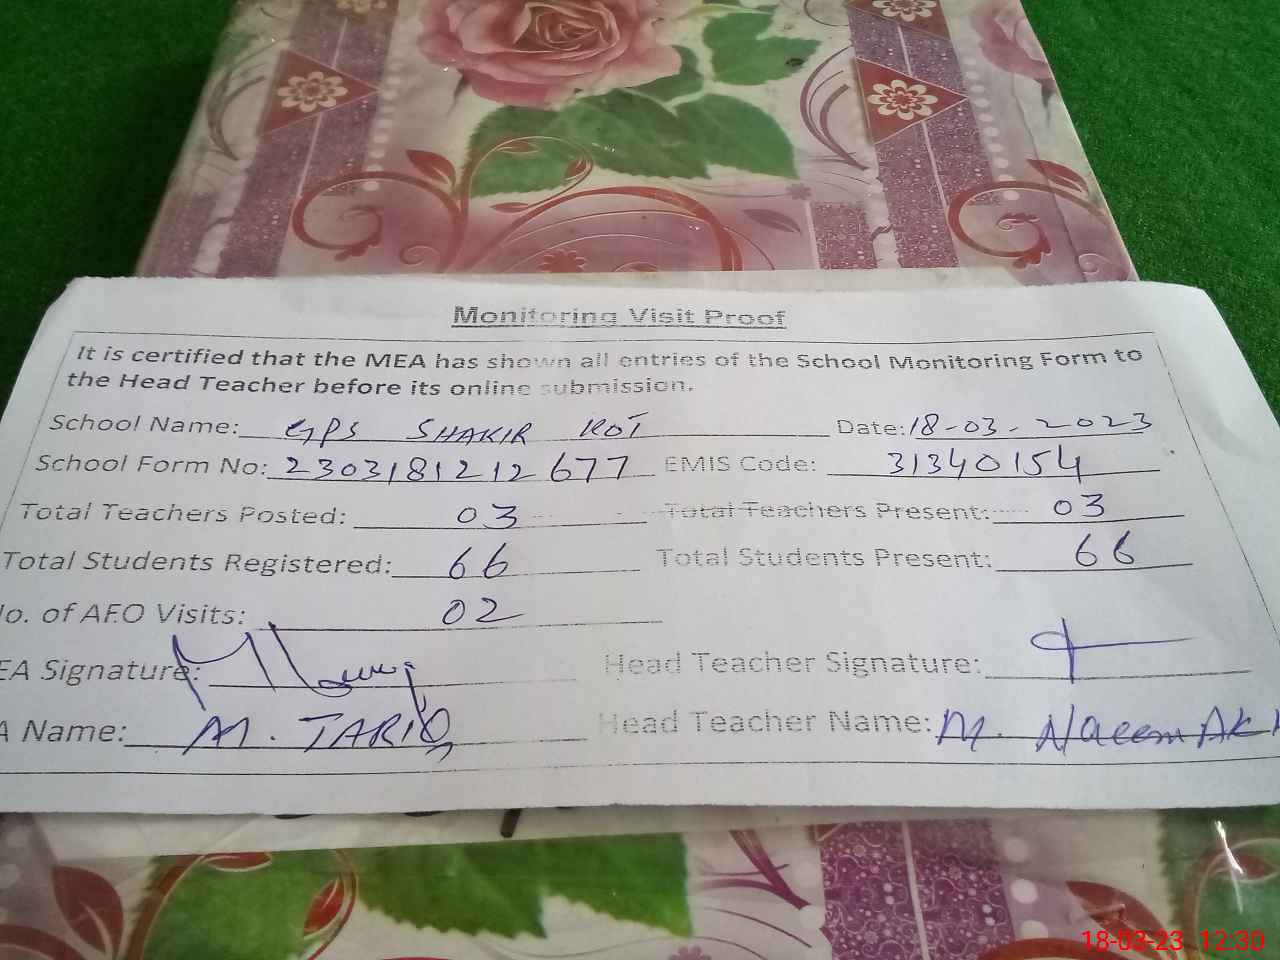 Monitoring Visit Proof
It is certified that the MEA has shown all entries of the School Monitoring Form to
the Head Teacher before its online submission.
School Name: GPS SHAKIR KOT Date: 18-03-2023
School Form No: 2303181212677 EMIS Code: 31340154
Total Teachers Posted: 03 Total Teachers Present: 03
Total Students Registered: 66 Total Students Present: 66
No. of AEO Visits: 02
EA Signature: Head Teacher Signature:
A Name: M. TARIQ Head Teacher Name: M. Naeem Ak
18-03-23 12:30